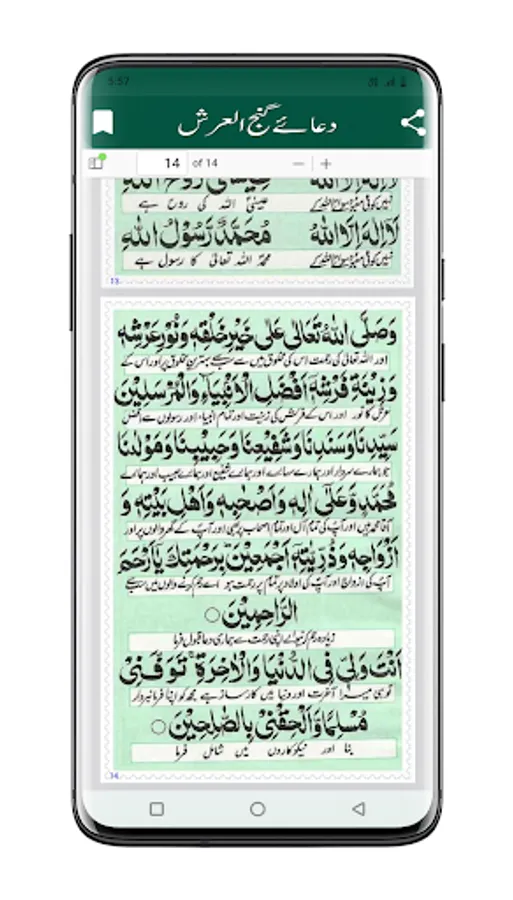 5:57
دعائے گنج العرش
14 of 14
لَآ اِلٰهَ اِلَّا اللهُ عِيْسٰى رُوْحُ اللهِ
عیسیٰؑ اللہ کی روح ہے
لَآ اِلٰهَ اِلَّا اللهُ مُحَمَّدٌ رَّسُوْلُ اللهِ
محمدؐ اللہ تعالیٰ کا رسول ہے
13.
وَصَلَّى اللهُ تَعَالٰى عَلٰى خَيْرِ خَلْقِهٖ وَنُوْرِ عَرْشِهٖ
اور اللہ تعالیٰ کی رحمت اس کی مخلوق میں سے سب سے بہترین مخلوق پر اور اس کے
وَزِيْنَةِ فَرْشِهٖٓ اَفْضَلِ الْاَنْبِيَآءِ وَالْمُرْسَلِيْنَ
عرش کا نور اور اس کے فرش کی زینت اور تمام انبیاء اور رسولوں سے افضل
سَيِّدِنَا وَسَنَدِنَا وَشَفِيْعِنَا وَحَبِيْبِنَا وَمَوْلٰنَا
جو ہمارے سردار اور ہمارے سہارے اور ہمارے شفیع اور ہمارے حبیب اور ہمارے
مُحَمَّدٍ وَّعَلٰٓى اٰلِهٖ وَاَصْحٰبِهٖ وَاَهْلِ بَيْتِهٖ وَ
آقا محمد ہیں اور آپ کی تمام آل اور تمام اصحاب پر بھی اور آپ کے گھر والوں پر اور
اَزْوَاجِهٖ وَذُرِّيَّتِهٖٓ اَجْمَعِيْنَ بِرَحْمَتِكَ يَآ اَرْحَمَ
آپ کی ازواج اور آپ کی اولاد پر تمام پر رحمت ہو اے رحم کرنے والوں میں سب سے
الرَّاحِمِيْنَ ○
زیادہ رحم کرنیوالے اپنی رحمت سے ہماری دعا قبول فرما
اَنْتَ وَلِيّٖ فِى الدُّنْيَا وَالْاٰخِرَةِ ۚ تَوَفَّنِىْ
تو ہی میرا آخرت اور دنیا میں کارساز ہے مجھ کو اپنا فرمانبردار
مُسْلِمًا وَّاَلْحِقْنِىْ بِالصّٰلِحِيْنَ ○
بنا اور نیکوکاروں میں شامل فرما
14.